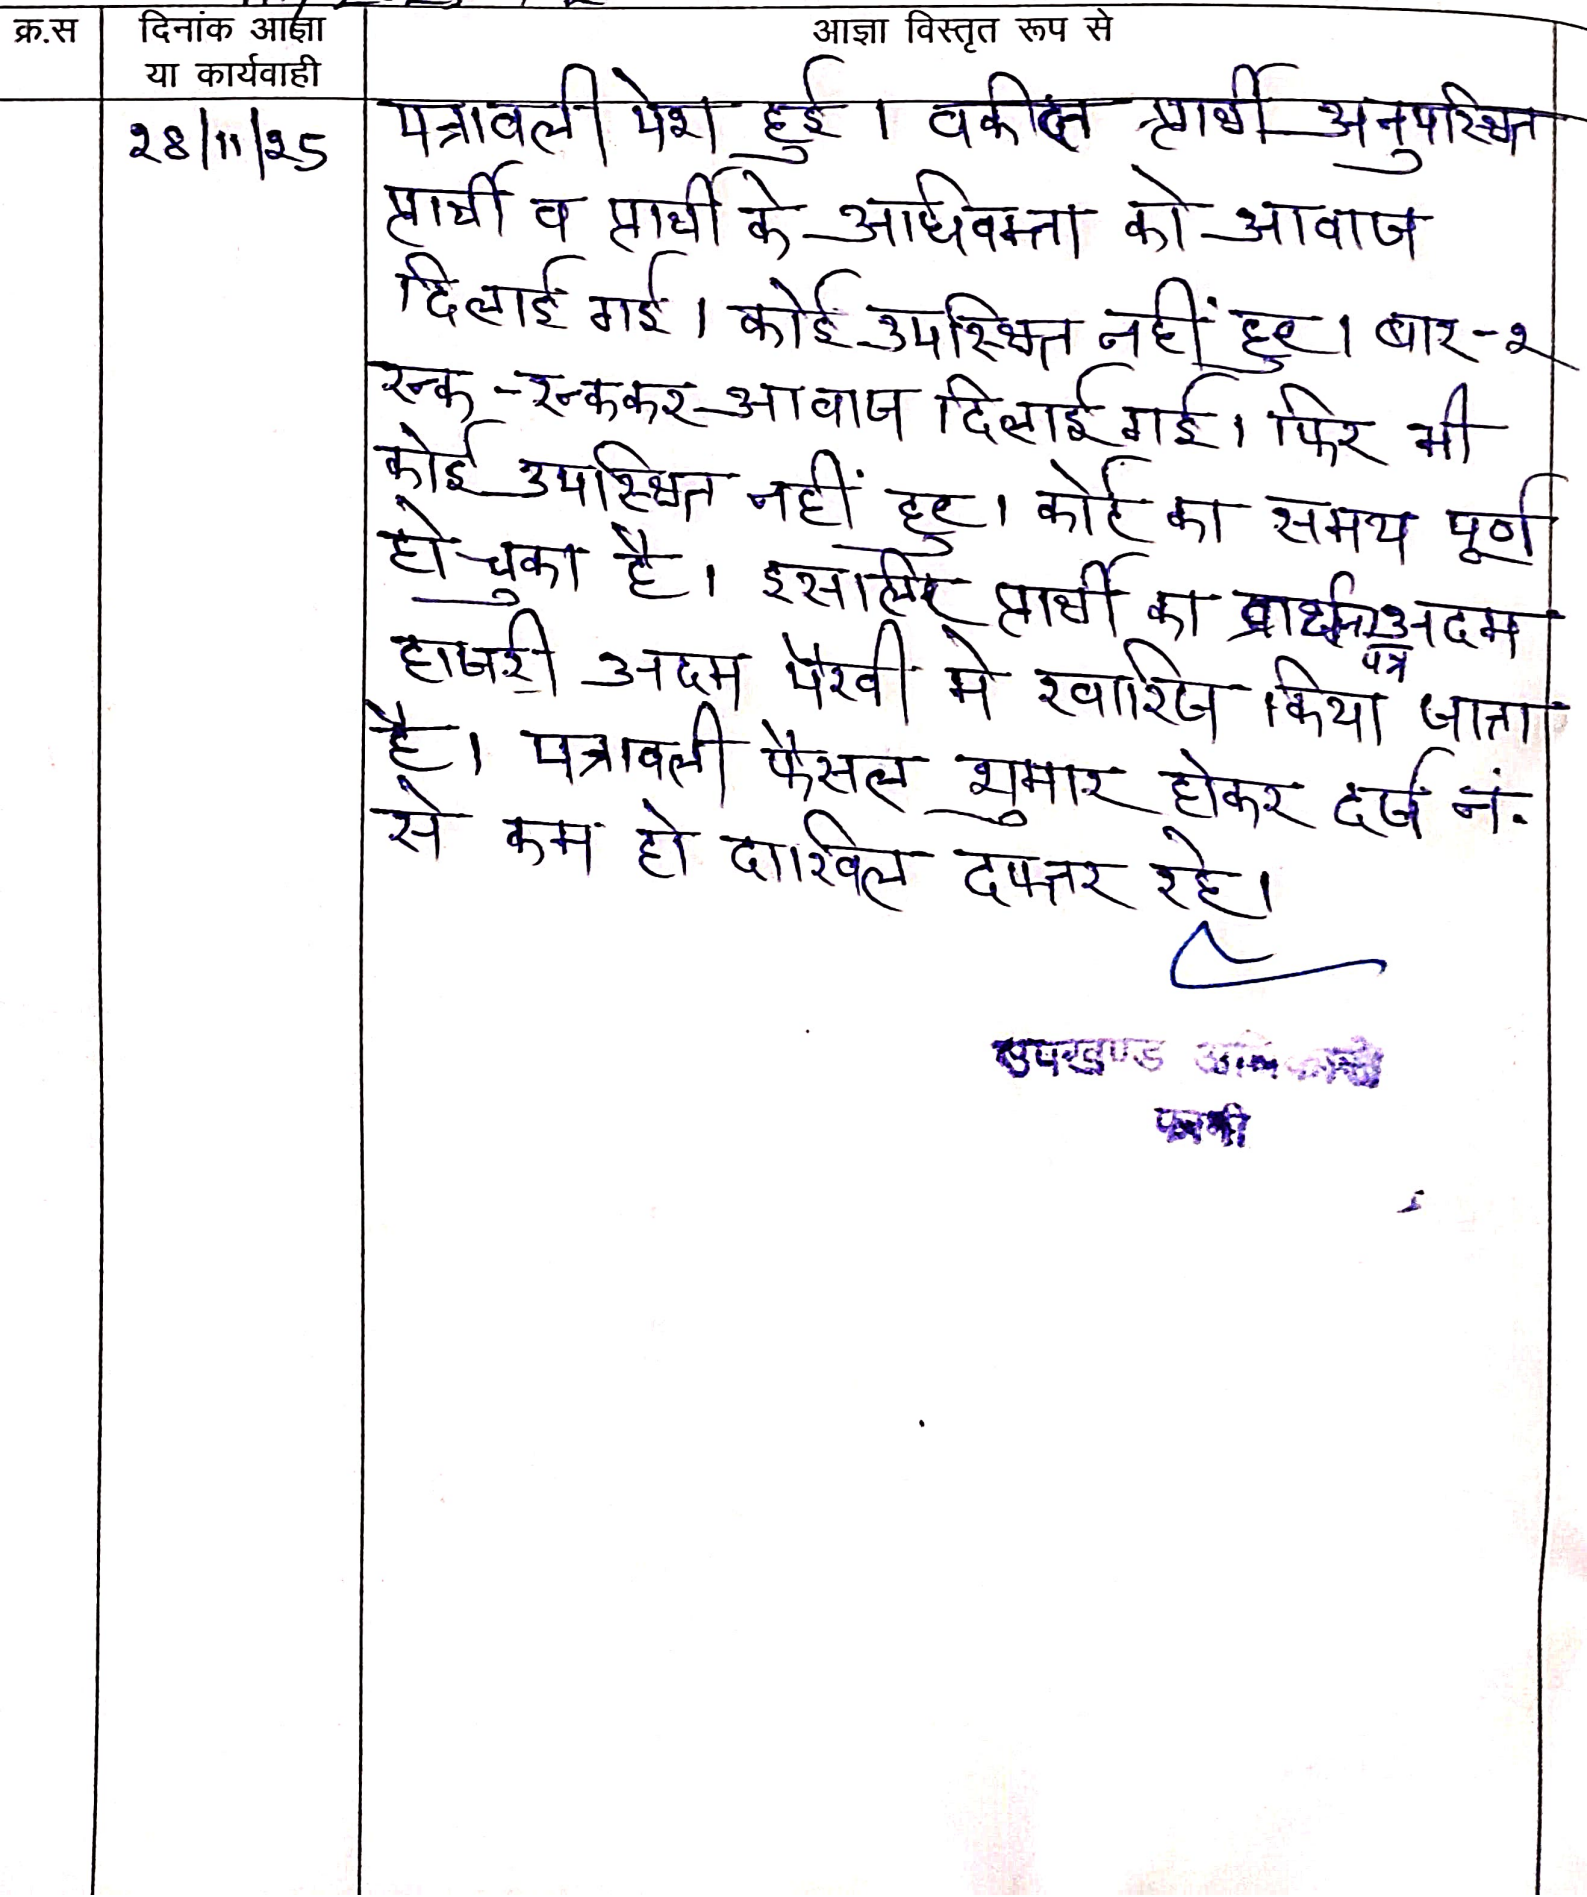 क्र.स
दिनांक आज्ञा
या कार्यवाही
आज्ञा विस्तृत रूप से
28/11/25
पत्रावली पेश हुई। वकील प्रार्थी अनुपस्थित
प्रार्थी व प्रार्थी के अधिवक्ता को आवाज
दिलाई गई। कोई उपस्थित नहीं हुए। बार-२
रूक-रूककर आवाज दिलाई गई। फिर भी
कोई उपस्थित नहीं हुए। कोर्ट का समय पूर्ण
हो चुका है। इसलिए प्रार्थी का प्रार्थना पत्र अदम
हाजरी अदम पैरवी मे खारिज किया जाता
है। पत्रावली फैसल शुमार होकर दर्ज नं.
से कम हो दाखिल दफ्तर रहे।
उपखण्ड